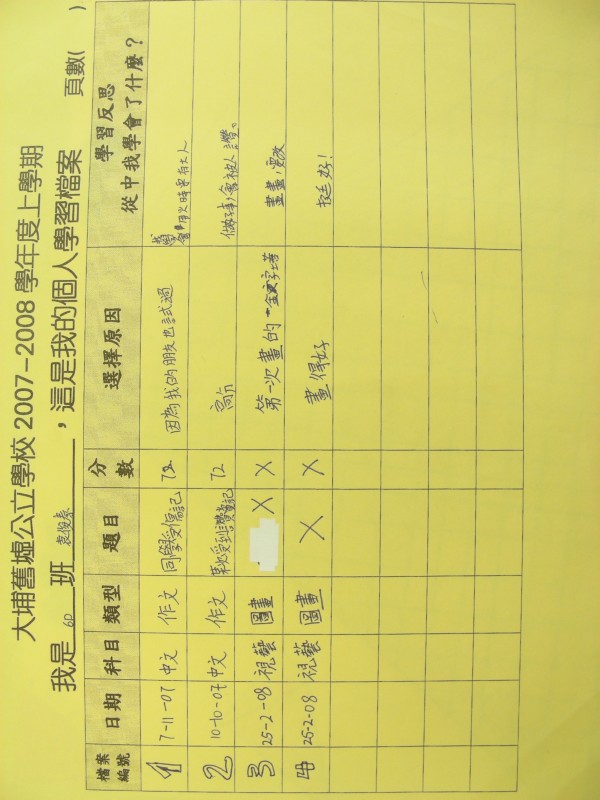 大埔舊墟公立學校 2007-2008 學年度上學期
我是 6D 班 袁俊泰 ，這是我的個人學習檔案 頁數( )
檔案編號 日期 科目 類型 題目 分數 選擇原因 學習反思 從中我學會了什麼？
1 7-11-07 中文 作文 同學受傷記 72 因為我的朋友也試過
2 10-10-07 中文 作文 受到讚賞記 72 做事,會被人讚。
3 25-2-08 視藝 圖畫 X X 第一次畫的金字塔 畫畫,要改
4 25-2-08 視藝 圖畫 X X 畫得好 挺好!